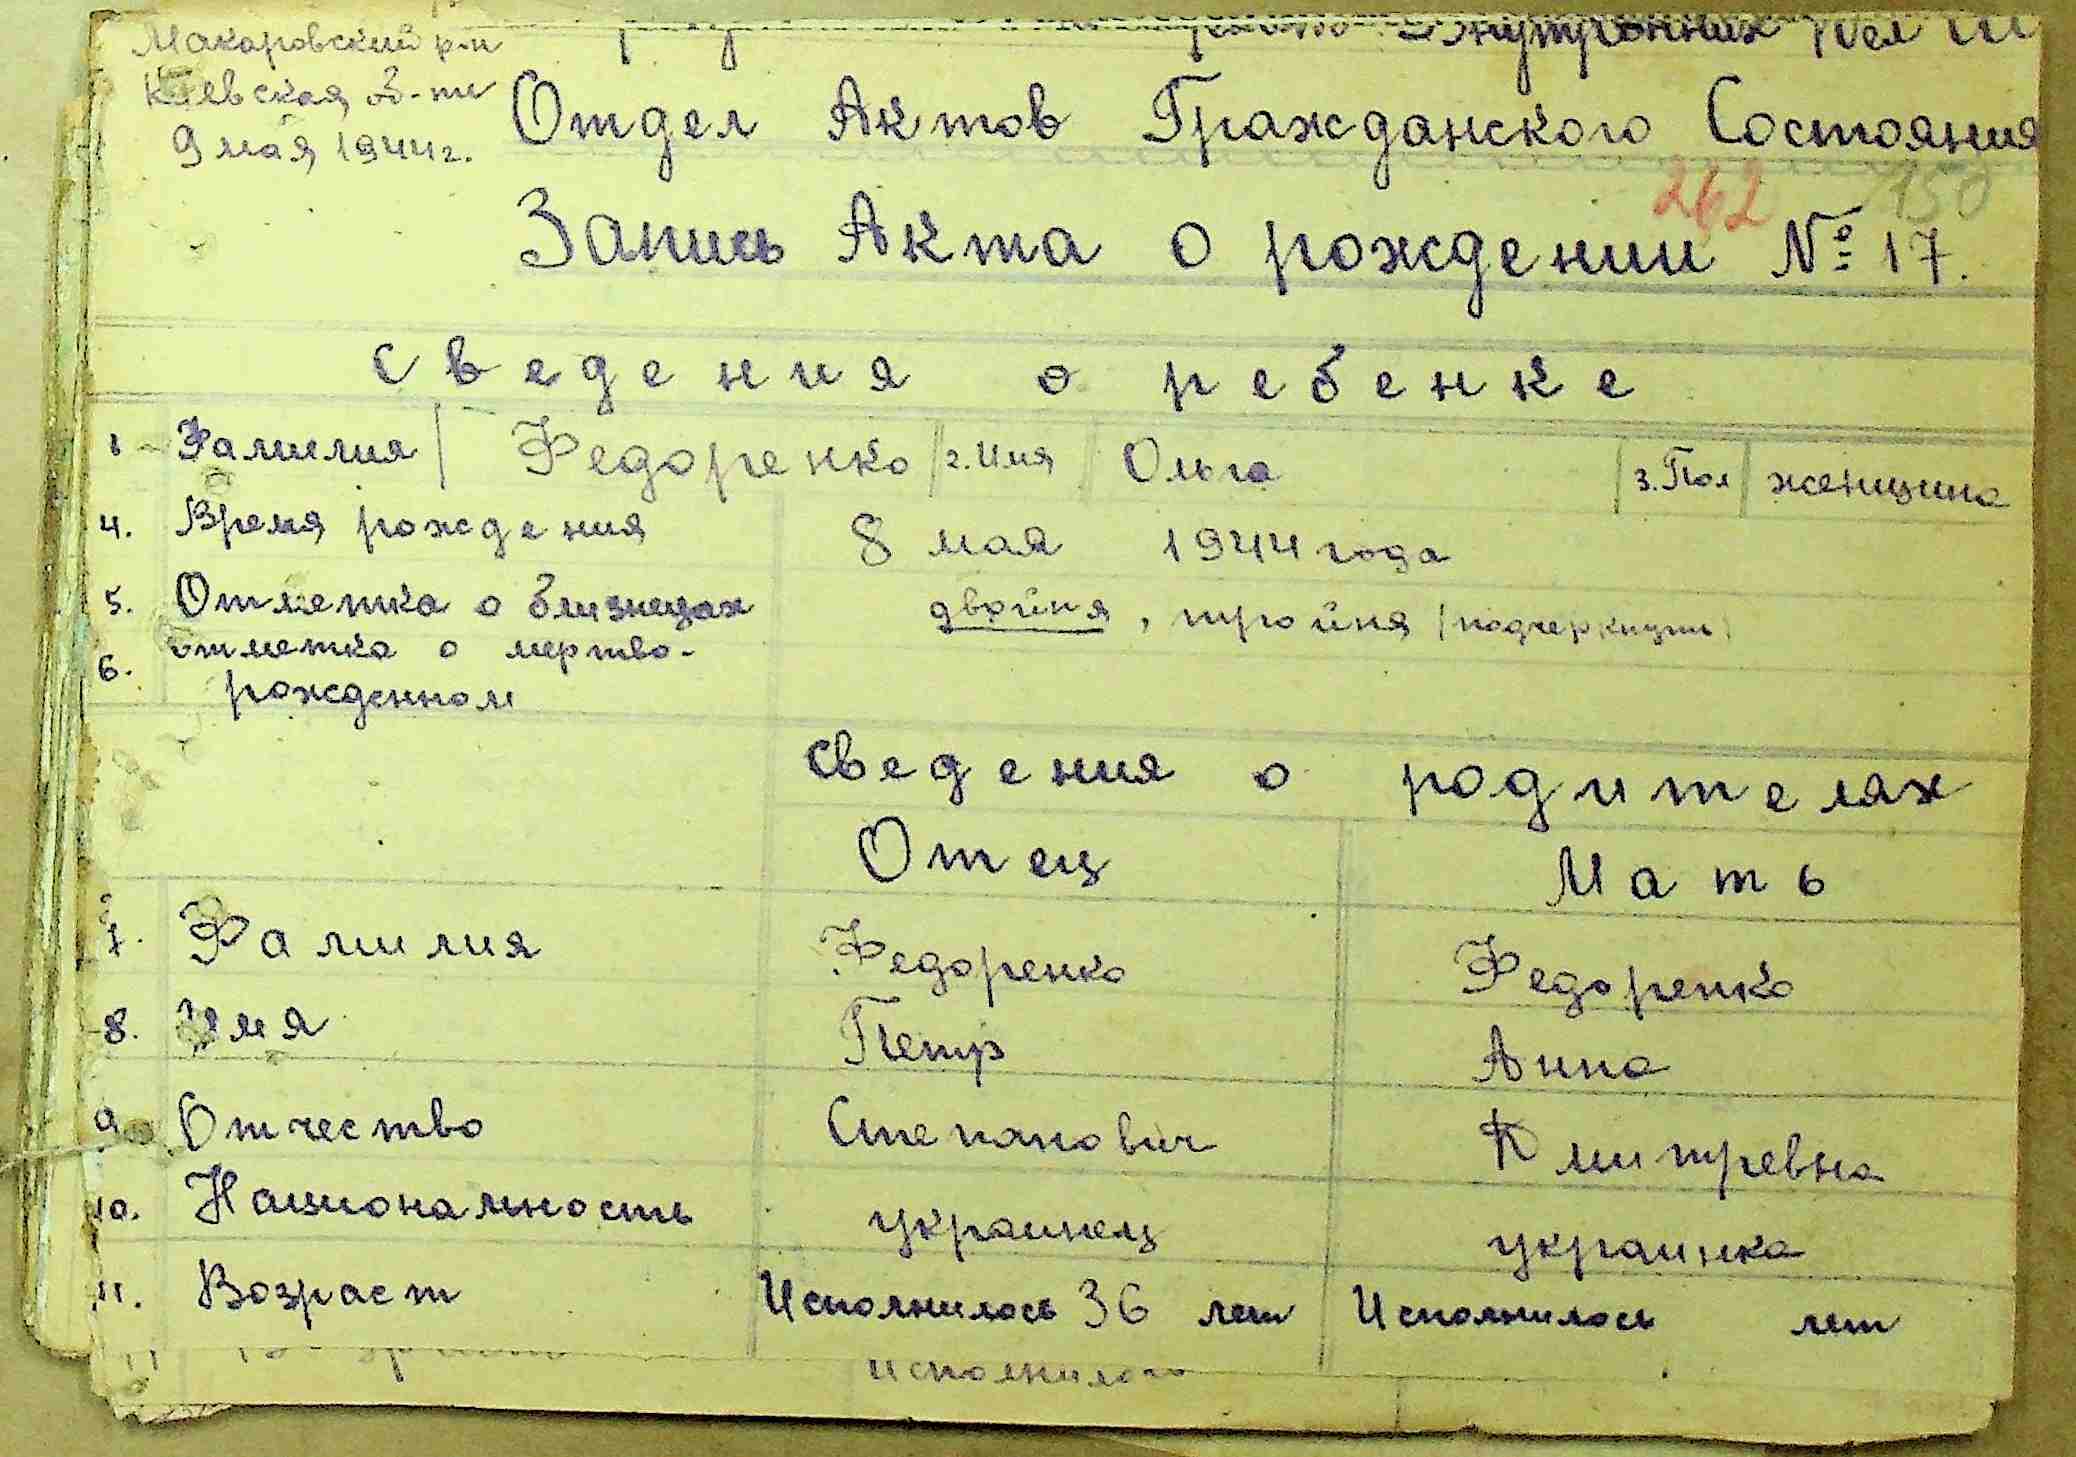 Макаровский р-н
Киевская об-ти
9 мая 1944 г.
Внутренних Дел
Отдел Актов Гражданского Состояния
262 150
Запись Акта о рождении № 17.
Сведения о ребенке
1 Фамилия Федоренко 2. Имя Ольга 3. Пол женщина
4. Время рождения 8 мая 1944 года
5. Отметка о близнецах двойня, тройня (подчеркнуть)
6. Отметка о мертво-
рожденном
Сведения о родителях
Отец Мать
7. Фамилия Федоренко Федоренко
8. Имя Петр Анна
9 Отчество Степанович Дмитревна
10. Национальность украинец украинка
11. Возраст Исполнилось 36 лет Исполнилось лет
Исполнилось